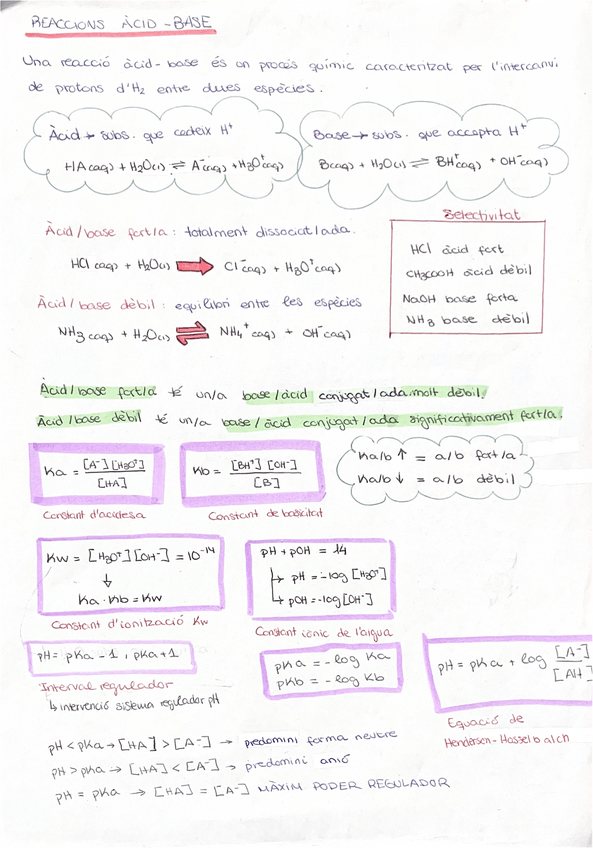 REACCIONS ÀCID-BASE
Una reacció àcid-base és un procés químic caracteritzat per l'intercanvi
de protons d'H₂ entre dues espècies.
Àcid → subs. que cedeix H⁺
HA(aq) + H₂O(l) ⇌ A⁻(aq) + H₃O⁺(aq)
Base → subs. que accepta H⁺
B(aq) + H₂O(l) ⇌ BH⁺(aq) + OH⁻(aq)
Àcid/base fort/a: totalment dissociat/ada.
HCl(aq) + H₂O(l) → Cl⁻(aq) + H₃O⁺(aq)
Àcid/base dèbil: equilibri entre les espècies
NH₃(aq) + H₂O(l) ⇌ NH₄⁺(aq) + OH⁻(aq)
Selectivitat
HCl àcid fort
CH₃COOH àcid dèbil
NaOH base forta
NH₃ base dèbil
Àcid/base fort/a té un/a base/àcid conjugat/ada molt dèbil.
Àcid/base dèbil té un/a base/àcid conjugat/ada significativament fort/a.
Ka = [A⁻][H₃O⁺] / [HA]
Constant d'acidesa
Kb = [BH⁺][OH⁻] / [B]
Constant de basicitat
Ka/b ↑ = a/b fort/a
Ka/b ↓ = a/b dèbil
Kw = [H₃O⁺][OH⁻] = 10⁻¹⁴
↓
Ka · Kb = Kw
Constant d'ionització Kw
pH + pOH = 14
↳ pH = -log [H₃O⁺]
↳ pOH = -log [OH⁻]
Constant iònic de l'aigua
pH = pKa - 1 , pKa + 1
Interval regulador
↳ intervenció sistema regulador pH
pKa = -log Ka
pKb = -log Kb
pH = pKa + log [A⁻] / [AH]
Equació de
Hendersen-Hasselbalch
pH < pKa → [HA] > [A⁻] → predomini forma neutre
pH > pKa → [HA] < [A⁻] → predomini anió
pH = pKa → [HA] = [A⁻] MÀXIM PODER REGULADOR